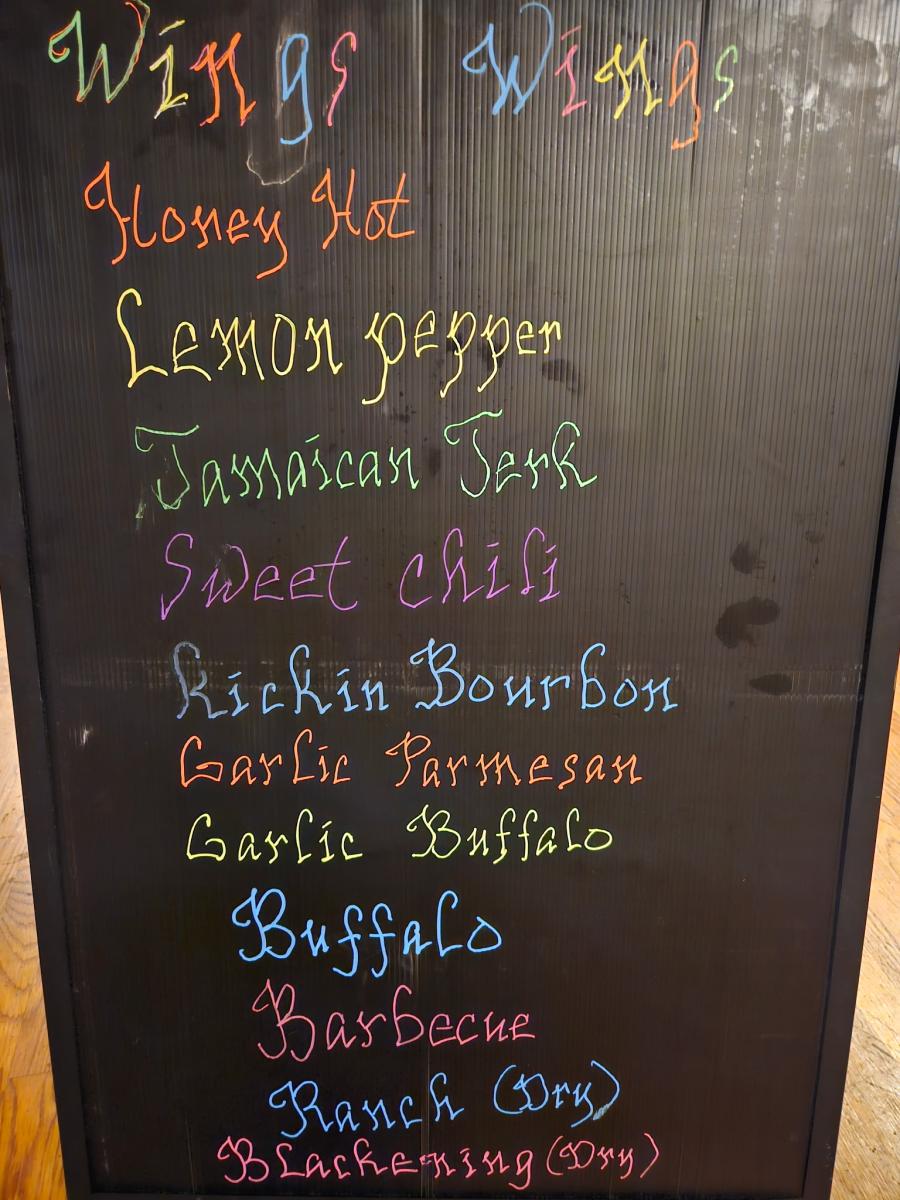 Wings Wings
Honey Hot
Lemon pepper
Jamaican Jerk
Sweet chili
Kickin Bourbon
Garlic Parmesan
Garlic Buffalo
Buffalo
Barbecue
Ranch (Dry)
Blackening (Dry)